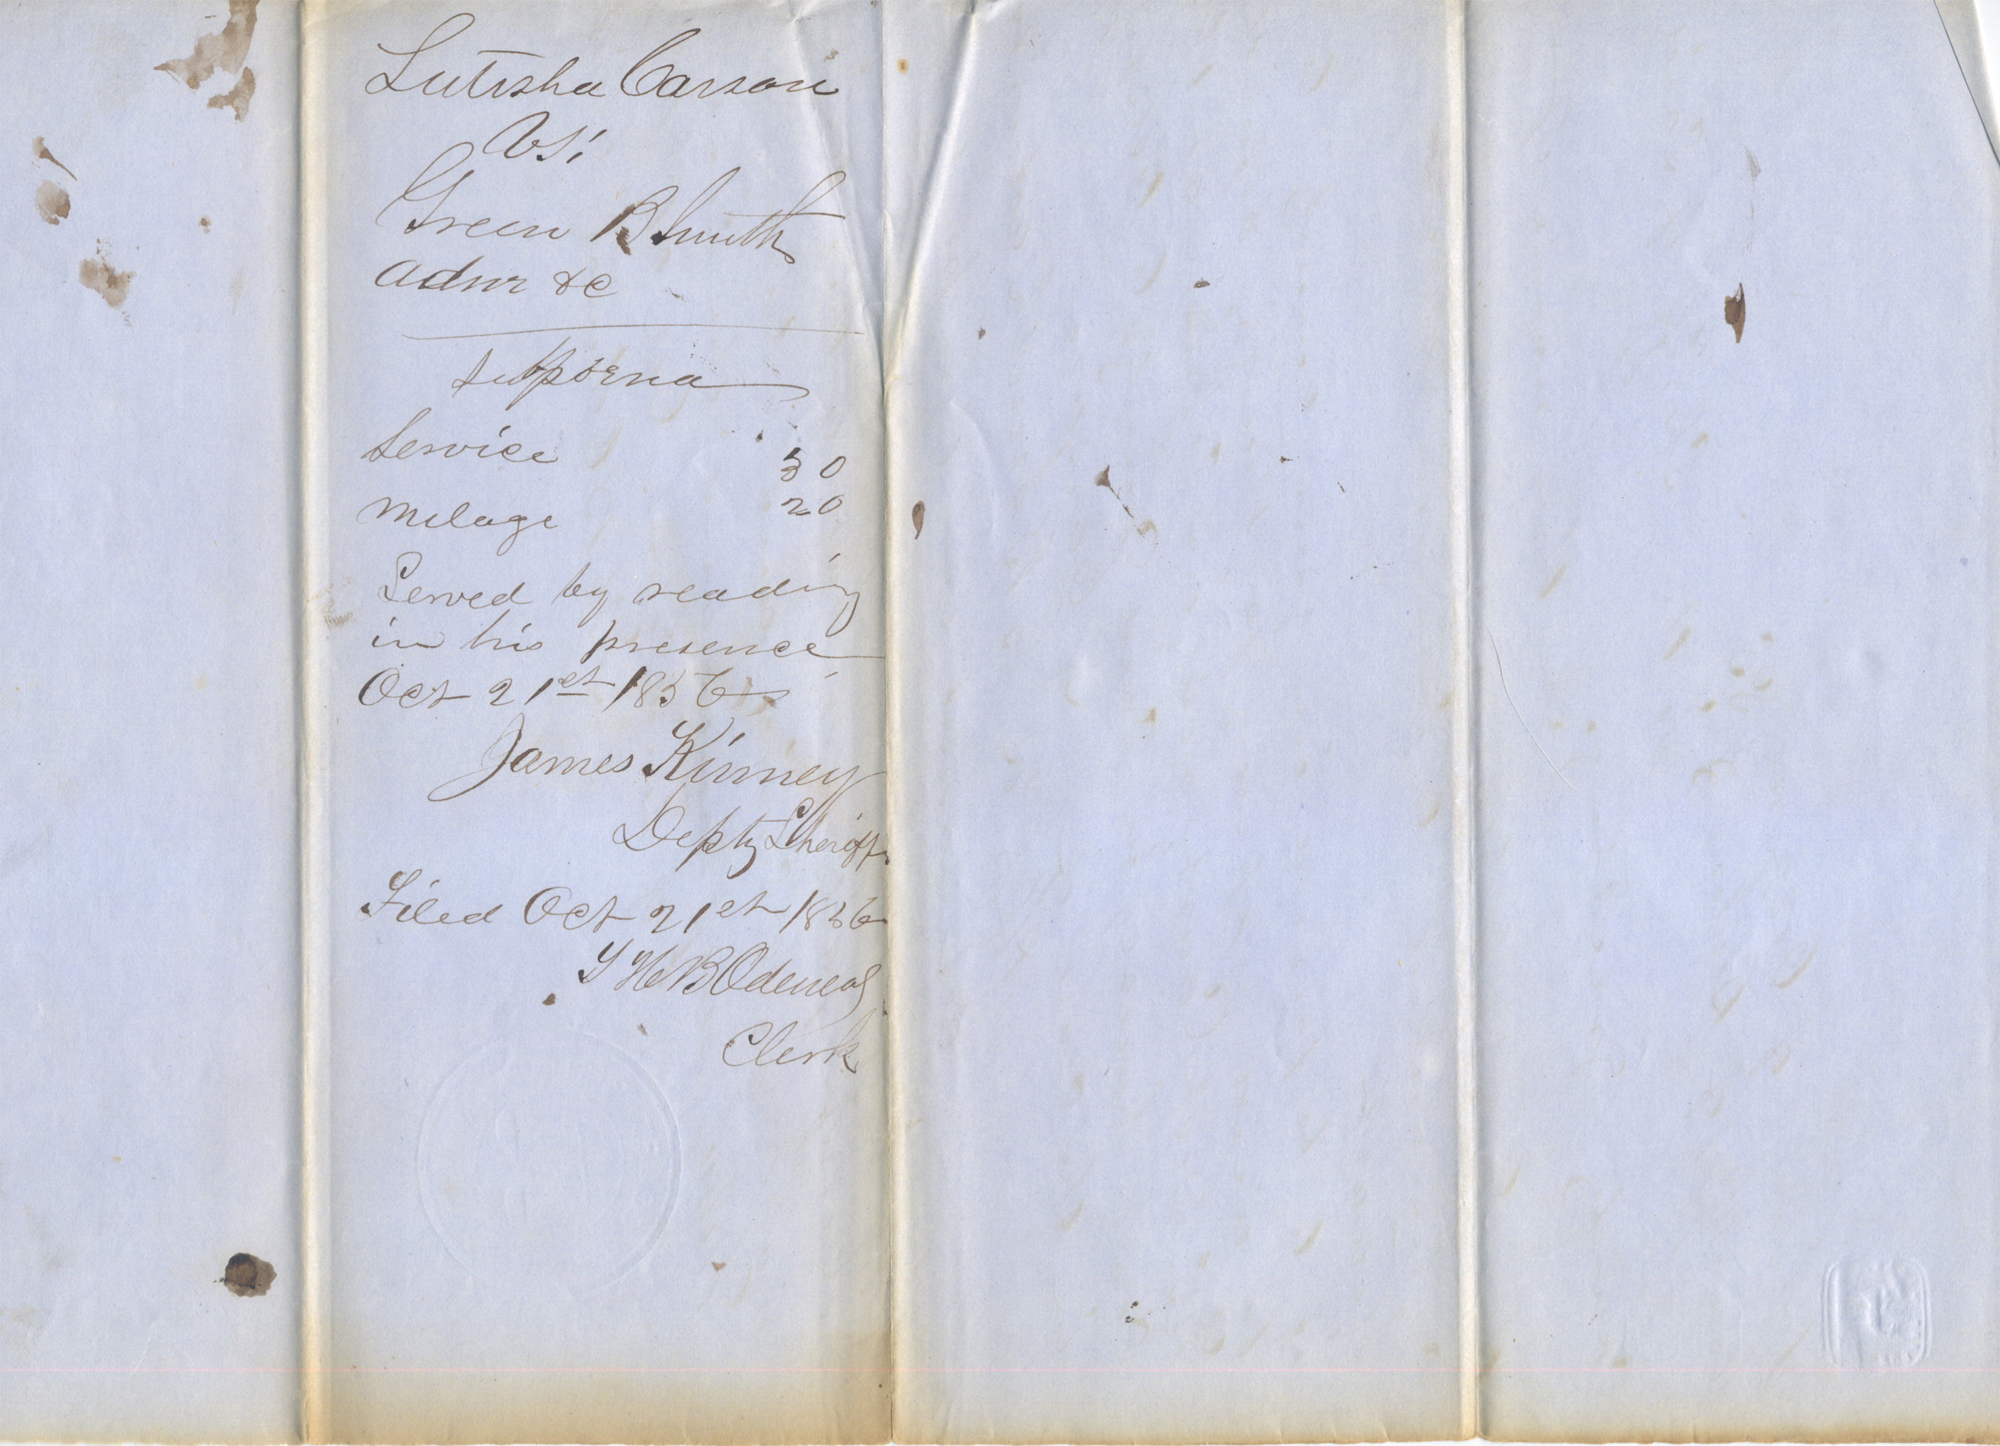 Lutisha Carson
Vs.
Green B Smith
Admr &c
Subpoena
Service 30
Milage 20
Served by reading
in his presence
Oct 21st 1856
James Kinney
Depty Sheriff
Filed Oct 21st 1856
T H B Odeneal
Clerk